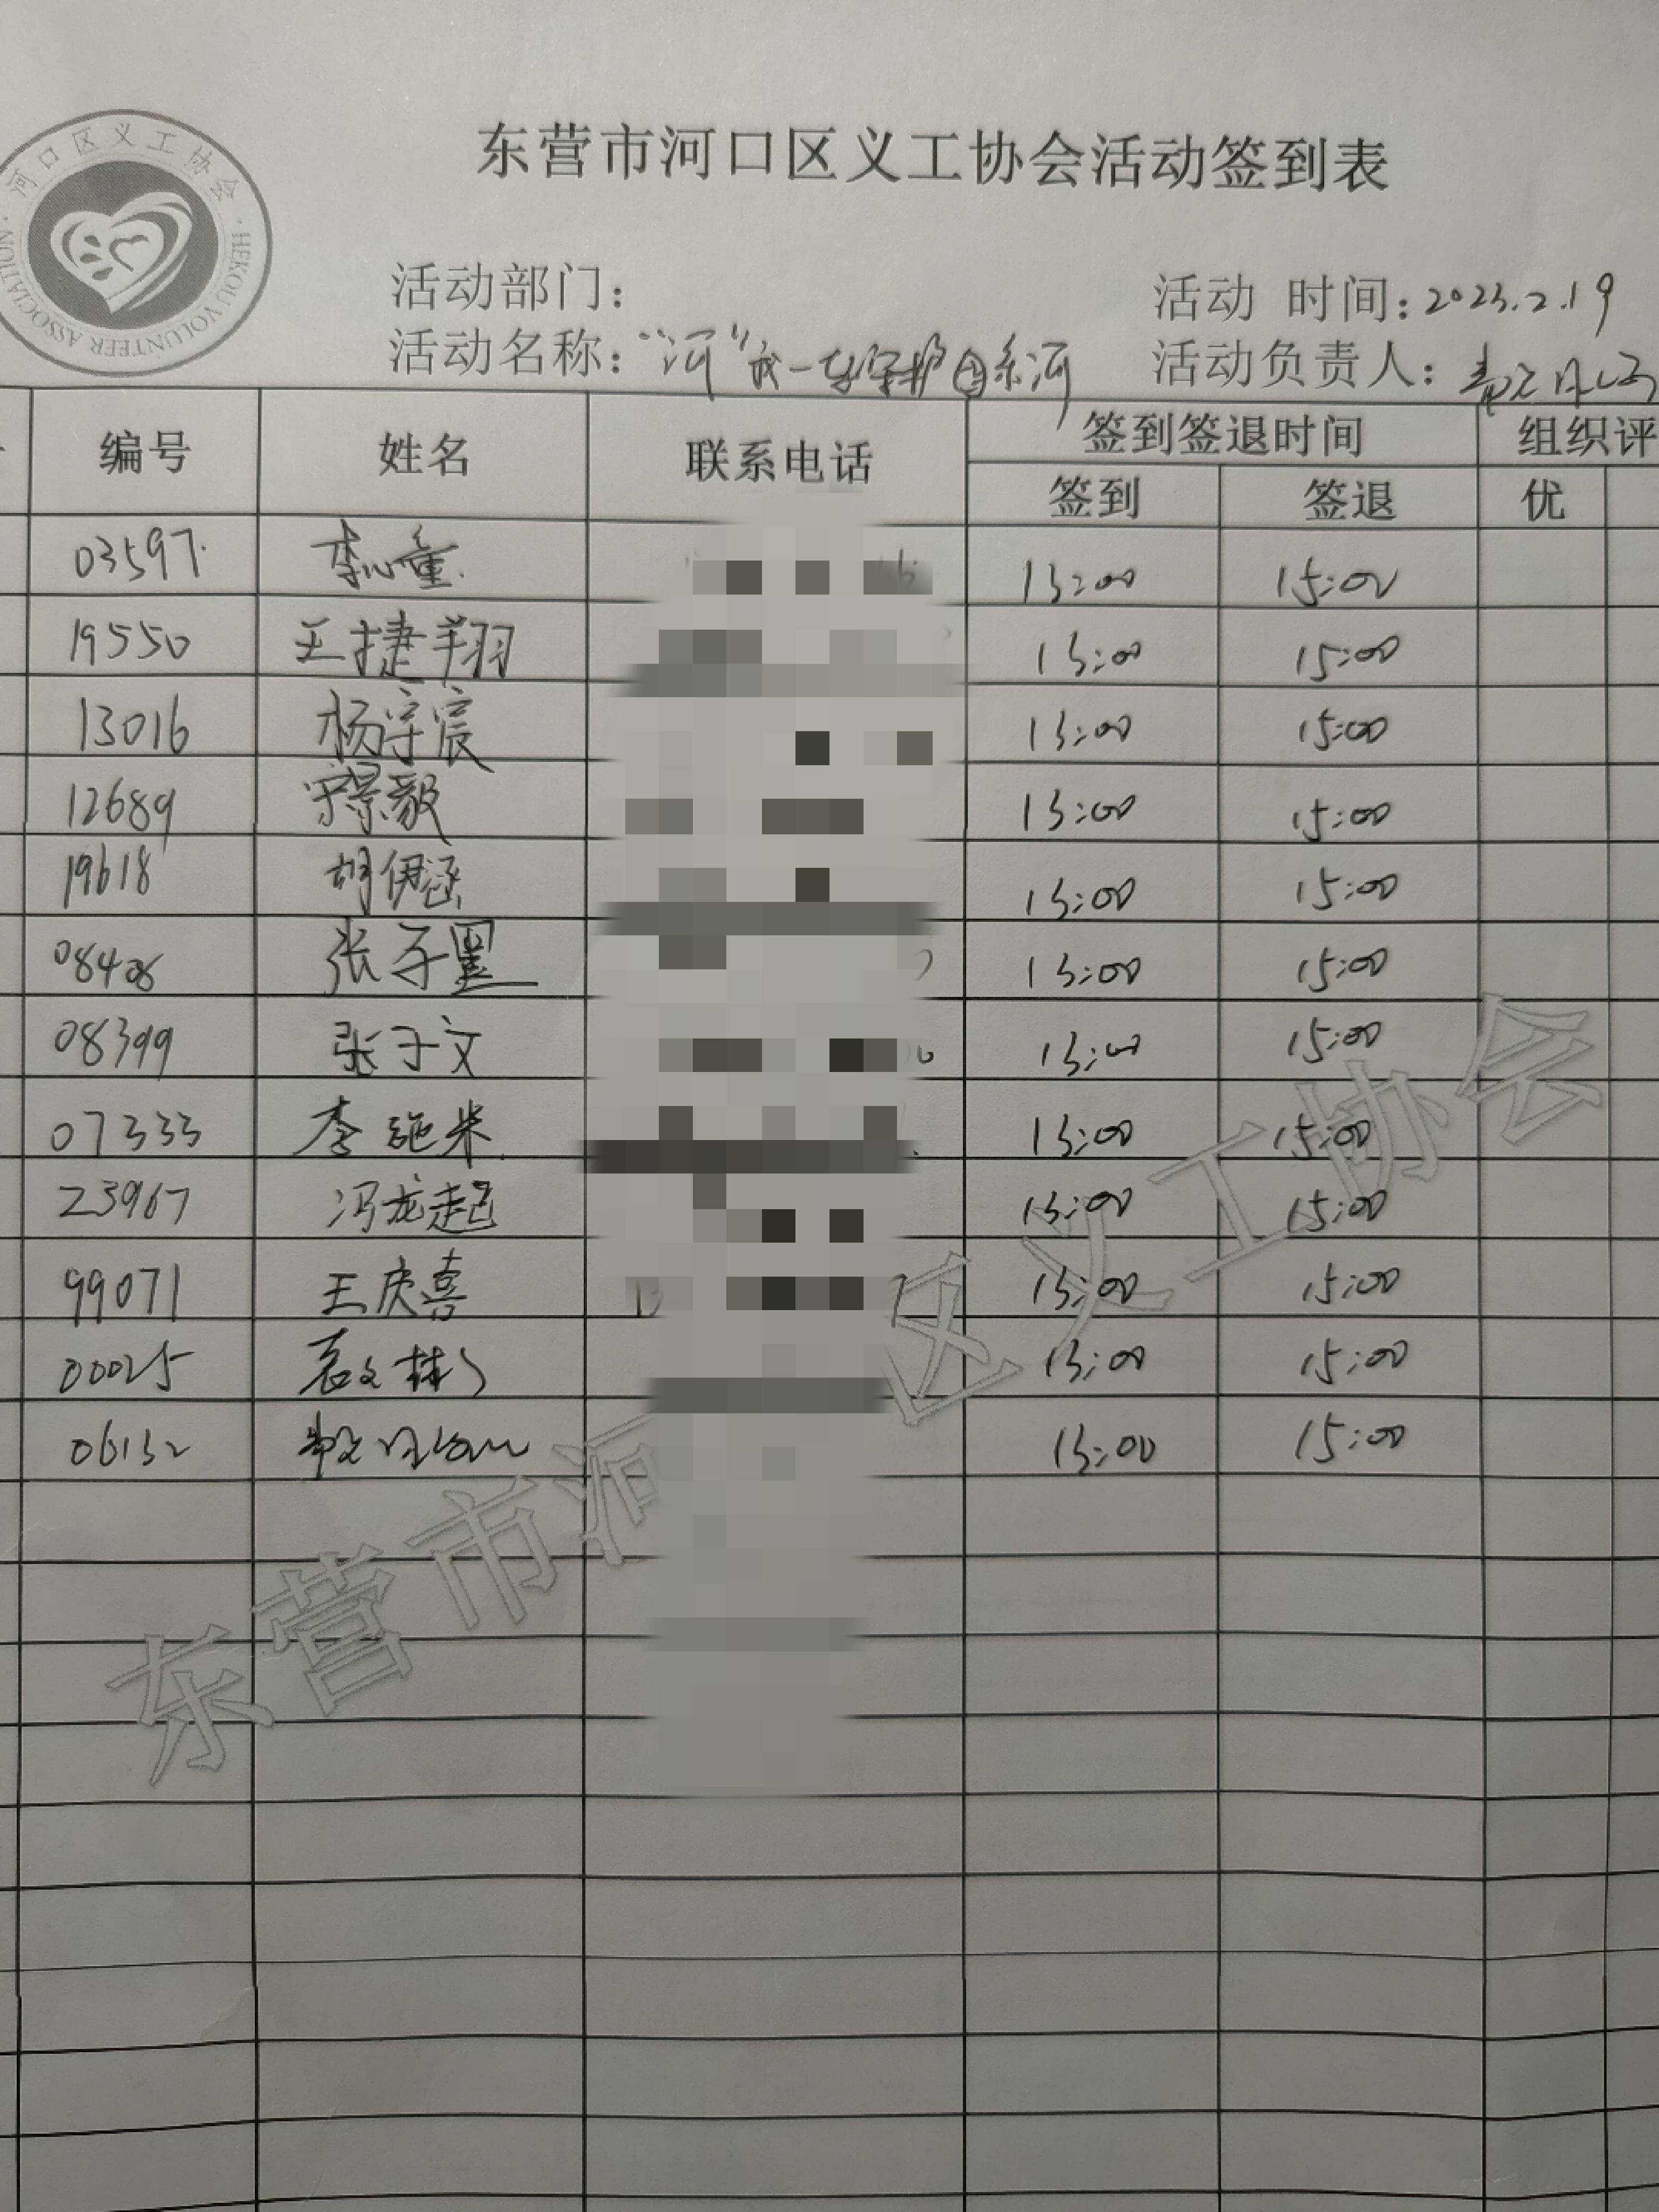 东营市河口区义工协会活动签到表
河口区义工协会
HEKOU VOLUNTEER ASSOCIATION
活动部门：
活动 时间：2023.2.19
活动名称：“河”我一起保护母亲河
活动负责人：
编号 姓名 联系电话 签到签退时间 组织评
签到 签退 优
03597 李心童 13:00 15:00
19550 王捷翔 13:00 15:00
13016 杨宇宸 13:00 15:00
12689 宋景毅 13:00 15:00
19618 胡伊涵 13:00 15:00
08408 张子墨 13:00 15:00
08399 张子文 13:00 15:00
07333 李施米 13:00 15:00
23967 冯龙起 13:00 15:00
99071 王庆喜 13:00 15:00
00025 袁文彬 13:00 15:00
06132 13:00 15:00
东营市河 区义工协会